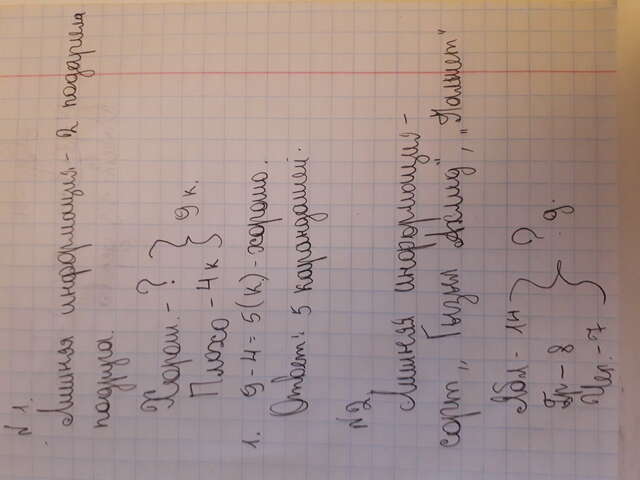 №1.
Лишняя информация - 2 подарила
подруга.
Хорош. - ? } 9 к.
Плохо - 4 к
1. 9 - 4 = 5 (к) - хорошо.
Ответ: 5 карандашей.
№2
Лишняя информация -
сорт „Гызыл Ахмед", „Пальмет"
Ябл - 14 } ?
Гр - 8 } д.
Чер. - 7